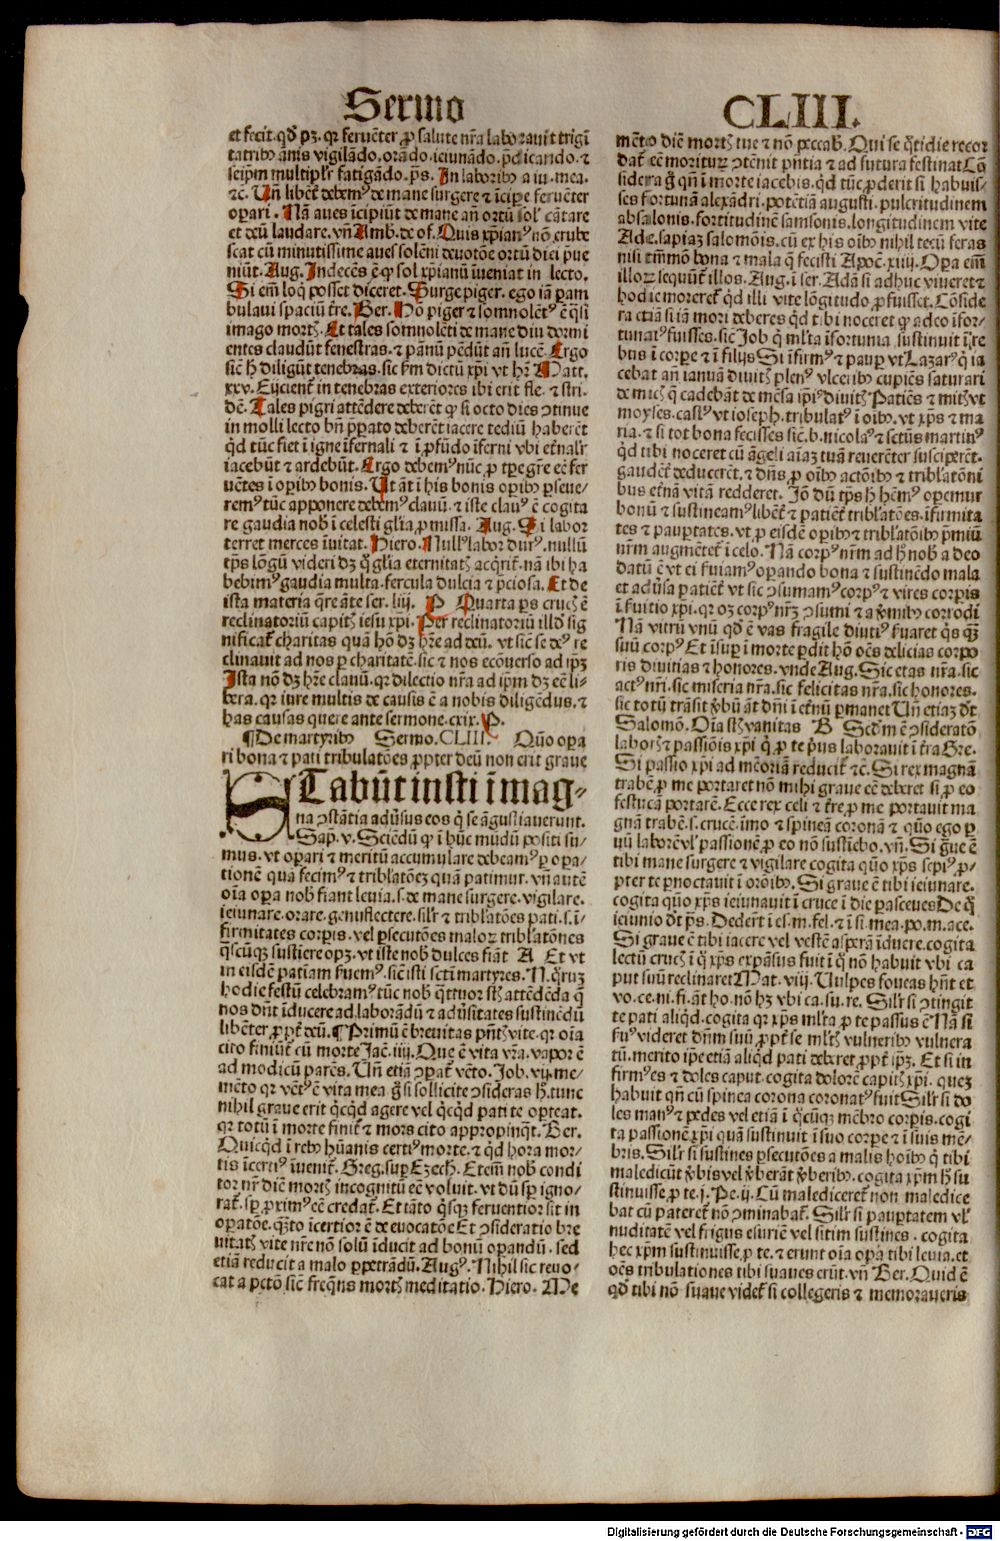 Sermo
et fecit. qđ pꝫ. qꝛ feruēter ꝓ salute nr̄a laborauit trigī
tatribꝰ ānis vigilādo. orādo. ieiunādo. p̄dicando. ⁊
seip̄m multiplr̄ fatigādo. p̄s. In laboribꝰ a iu. mea.
⁊c̄. Uñ libēt̄ debemꝰ de mane surgere ⁊ īcipe feruēter
oꝑari. Nā aues īcipiūt de mane añ ortū sol' cātare
et deū laudare. vñ Amb. de of. Quis xp̄ianꝰ nō erube
scat cū minutissime aues solēni deuotōe ortū diei p̄ue
niūt. Aug. Indecēs ē ꝙ sol xp̄ianū īueniat in lecto.
Si em̄ loq̄ posset diceret. Surge piger. ego iā ꝑam
bulaui spaciū tr̄e. Ber. Hō piger ⁊ somnolētꝰ ē q̄si
imago mortꝭ. Et tales somnolēti de mane diu dormi
entes claudūt fenestras. ⁊ pānū pēdūt añ lucē. Ergo
sic̄ ħ diligūt tenebras. sic ẜm dictū xp̄i vt hr̄ Matt.
xxv. Eijcient̄ in tenebras exteriores ibi erit fle. ⁊ stri.
dē. Tales pigri attēdere deberēt ꝙ si octo dies ↄtinue
in molli lecto bn̄ p̄ꝑato deberēt iacere tediū haberēt
qđ tūc fiet ī igne īfernali ⁊ ī ꝓfūdo īferni vbi et̄nalr̄
iacebūt ⁊ ardebūt. Ergo debemꝰ nūc ꝓ tp̄e gr̄e eē fer
uētes ī oꝑibꝰ bonis. Ut āt ī his bonis oꝑibꝰ ꝑseue/
remꝰ tūc apponere debemꝰ clauū. ⁊ iste clauꝰ ē cogita
re gaudia nob̄ ī celesti gl̄ia ꝓmissa. Aug. Si labor
terret merces īuitat. Hiero. Nullꝰ labor durꝰ. nullū
tp̄s lōgū videri dꝫ q̄ gl̄ia eternitatꝭ acq̄rit̄. nā ibi ha
bebimꝰ gaudia multa. fercula dulcia ⁊ p̄ciosa. Et de
ista materia q̄re āte ser. liij. P Quarta ꝑs crucꝭ ē
reclinatoriū capitꝭ iesu xp̄i. Per reclinatoriū illđ sig
nificat̄ charitas quā hō dꝫ hr̄e ad deū. vt sic̄ se deꝰ re
clinauit ad nos ꝑ charitatē. sic ⁊ nos ecōuerso ad ip̄ꝫ
Ista nō dꝫ hr̄e clauū. qꝛ dilectio nr̄a ad ip̄m dꝫ eē li/
bera. qꝛ iure multis de causis ē a nobis diligēdus. ⁊
has causas quere ante sermone. cxix. P.
¶ De martyribꝰ Sermo. CLIII. Quō oꝑa
ri bona ⁊ pati tribulatōes ꝓpter deū non erit graue
STabūt iusti ī mag-
na ↄstātia aduſus eos q̄ se āgustiauerunt.
Sap. v. Sciēdū ꝙ ī hūc mūdū positi su/
mus. vt oꝑari ⁊ meritū accumulare debeamꝰ ꝑ oꝑa/
tionē quā fecimꝰ ⁊ tribl'atōeꝫ quā patimur. vñ autē
oīa oꝑa nob̄ fiant leuia. s. de mane surgere. vigilare.
ieiunare. orare. genuflectere. silr̄ ⁊ tribl'atōes pati. s. ī/
firmitates corꝑis. vel ꝑsecutōes maloꝝ tribl'atōnes
q̄scūqꝫ sustiere opꝫ. vt iste nob̄ dulces fiāt A Et vt
in eisdē patiam̄ fuem̄ꝰ. sic̄ isti sct̄ī martyres. N. q̄ꝝ
hodie festū celebramꝰ tūc nob̄ q̄ttuor st̄ꝭ attēdēda q̄
nos dn̄t īducere ad laborādū ⁊ aduſitates sustinēdū
libēter ꝓꝑt̄ deū. ¶ Primū ē breuitas pn̄tꝭ vite. qꝛ oīa
cito finiūt̄ cū morte Jac̄. iiij. Que ē vita vr̄a. vapor ē
ad modicū parēs. Uñ etiā ↄꝑat̄ vēto. Job. vij. me/
mēto qꝛ vētꝰ ē vita mea. ḡ si sollicite ↄsideras ħ tunc
nihil graue erit q̄cqđ agere vel q̄cqđ pati te oꝑteat.
qꝛ totū ī morte finit̄ ⁊ mors cito appropinq̄t. Ber.
Quicqđ ī rebꝰ hūanis certiꝰ morte. ⁊ qđ hora mor/
tis īcertiꝰ īuenit̄. Greg. suꝑ Ezech̄. Etem̄ nob̄ condi
tor nr̄ diē mortꝭ incognitū eē voluit. vt dū sꝑ igno/
rat̄. sꝑ ꝓximꝰ eē credat̄. Et tāto q̄sqꝫ feruentior sit in
oꝑatōe. q̄ꝫto īcertior ē de euocatōe Et ↄsideratio bre
uitatꝭ vite nr̄e nō solū īducit ad bonū oꝑandū. sed
etiā reducit a malo ꝑpetrādū. Augꝰ. Nihil sic reuo/
cat a pctō sic̄ freq̄ns mortꝭ meditatio. Hiero. Me
CLIII.
mēto diē mortꝭ tue ⁊ nō peccab̄. Qui se q̄tidie recor
dat̄ eē morituꝝ ↄtēnit pn̄tia ⁊ ad futura festinat Cō
sidera ḡ qn̄ ī morte iacebis. qđ tūc ꝓderit si habuis/
ses fortunā alexādri. potētiā augusti. pulcritudinem
absalonis. fortitudinē samsonis. longitudinem vite
Ade. sapiāꝫ salomōis. cū ex his oībꝰ nihil tecū feras
nisi tm̄mō bona ⁊ mala q̄ fecisti Apoc̄. xiiij. Oꝑa em̄
illoꝝ sequūt̄ illos. Aug. ī ser. Adā si adhuc viueret ⁊
hodie moreret̄ qđ illi vite lōgitudo ꝓfuisset. Cōside
ra etiā si iā mori deberes qđ tibi noceret ꝙ adeo īfor/
tunatꝰ fuisses. sic̄ Job q̄ ml̄ta īfortunia sustinuit ī re
bus ī corꝑe ⁊ ī filijs Si īfirmꝰ ⁊ pauꝑ vt Lazarꝰ q̄ ia
cebat añ ianuā diuitꝭ plenꝰ vlceribꝰ cupiēs saturari
de micꝭ q̄ cadebāt de mēsa ip̄iꝰ diuitꝭ Patiēs ⁊ mitꝭ vt
moyses. castꝰ vt ioseph. tribulatꝰ ī oībꝰ. vt xp̄s ⁊ ma
ria. ⁊ si tot bona fecisses sic̄. b. nicolaꝰ ⁊ sctūs martinꝰ
qđ tibi noceret cū āgeli aīaꝫ tuā reuerēter susciperēt.
gaudēt̄ deducerēt. ⁊ dn̄s ꝓ oībꝰ actōibꝰ ⁊ tribl'atōni
bus et̄nā vitā redderet. Jō dū tp̄s ħ hēmꝰ oꝑemur
bonū ⁊ sustineamꝰ libēt̄ ⁊ patiēt̄ tribl'atōes. īfirmita
tes ⁊ pauꝑtates. vt ꝓ eisdē oꝑibꝰ ⁊ tribl'atōibꝰ p̄miū
nr̄m augmētet̄ ī celo. Nā corpꝰ nr̄m ad ħ nob̄ a deo
datū ē vt ei ſuiamꝰ oꝑando bona ⁊ sustinēdo mala
et aduſa patiēt̄ vt sic ↄsumamꝰ corpꝰ ⁊ vires corꝑis
ī ſuitio xp̄i. qꝛ oꝫ corpꝰ nr̄ꝫ ↄsumi ⁊ a v̄mibꝰ corrodi
Nā vitrū vnū qđ ē vas fragile diutiꝰ ſuaret q̄s q̄ꝫ
suū corpꝰ Et īsuꝑ ī morte ꝑdit hō oēs delicias corꝑo
ris diuitias ⁊ honores. vnde Aug. Sic etas nr̄a. sic
actꝰ nr̄i. sic miseria nr̄a. sic felicitas nr̄a. sic honores.
sic totū trāsit v̄bū āt dn̄i ī et̄nū ꝑmanet Uñ etiaꝫ dt̄
Salomō. Oīa st̄ꝭ vanitas B Scđm ē ↄsideratō
laborꝭ ⁊ passiōis xp̄i q̄ ꝓ te p̄us laborauit ī tr̄a Gre.
Si passio xp̄i ad mēoriā reducit̄ ⁊c̄. Si rex magnā
trabē ꝓ me portaret nō mihi graue eē deberet si ꝓ eo
festucā portarē. Ecce rex celi ⁊ tr̄e ꝓ me portauit ma
gnā trabē. s. crucē. īmo ⁊ spineā coronā ⁊ quō ego ꝑ
uū laborē vl' passionē ꝓ eo nō sustiēbo. vñ. Si g̈ue ē
tibi mane surgere ⁊ vigilare cogita quō xp̄s sepiꝰ ꝓ/
pter te ꝑnoctauit ī orōibꝰ. Si graue ē tibi ieiunare.
cogita quō xp̄s ieiunauit ī cruce ī die parasceues De q̄
ieiunio dt̄ p̄s. Dedert̄ ī es. m. fel. ⁊ ī si. mea. po. m. ace.
Si graue ē tibi iacere vel vestē asꝑerā īduere. cogita
lectū crucꝭ ī q̄ xp̄s expāsus fuit ī q̄ nō habuit vbi ca
put suū reclinaret Mat. viij. Uulpes foueas hn̄t et
vo. ce. ni. fi. āt ho. nō hꝫ vbi ca. su. re. Silr̄ si ↄtingit
te pati aliqđ. cogita qꝛ xp̄s ml̄ta ꝓ te passus ē Nā si
ſuꝰ videret dn̄m suū ꝓꝑt̄ se ml̄tꝭ vulneribꝰ vulnera
tū. merito ip̄e etiā aliqđ pati deberet ꝓꝑt̄ ip̄ꝫ. Et si in
firmꝰ es ⁊ doles caput. cogita dolorē capitꝭ xp̄i. queꝫ
habuit qn̄ cū spinea corona coronatꝰ fuit Silr̄ si do
les manꝰ ⁊ pedes vel etiā ī q̄cūqꝫ mēbro corꝑis. cogi
ta passionē xp̄i quā sustinuit ī suo corꝑe ⁊ ī suis mē/
bris. Silr̄ si sustines ꝑsecutōes a malis hoībꝰ q̄ tibi
maledicūt v̄bis vel v̄berāt v̄beribꝰ. cogita xp̄m ħ su
stinuisse ꝓ te. j. Pe. ij. Cū malediceret̄ non maledice
bat cū pateret̄ nō ↄminabat̄. Silr̄ si pauꝑtatem vl'
nuditatē vel frigus esuriē vel sitim sustines. cogita
hec xp̄m sustinuisse ꝓ te. ⁊ erunt oīa oꝑa tibi leuia. et
oēs tribulationes tibi suaues erūt. vñ Ber. Quid ē
qđ tibi nō suaue videt̄ si collegeris ⁊ memoraueris
Digitalisierung gefördert durch die Deutsche Forschungsgemeinschaft - DFG